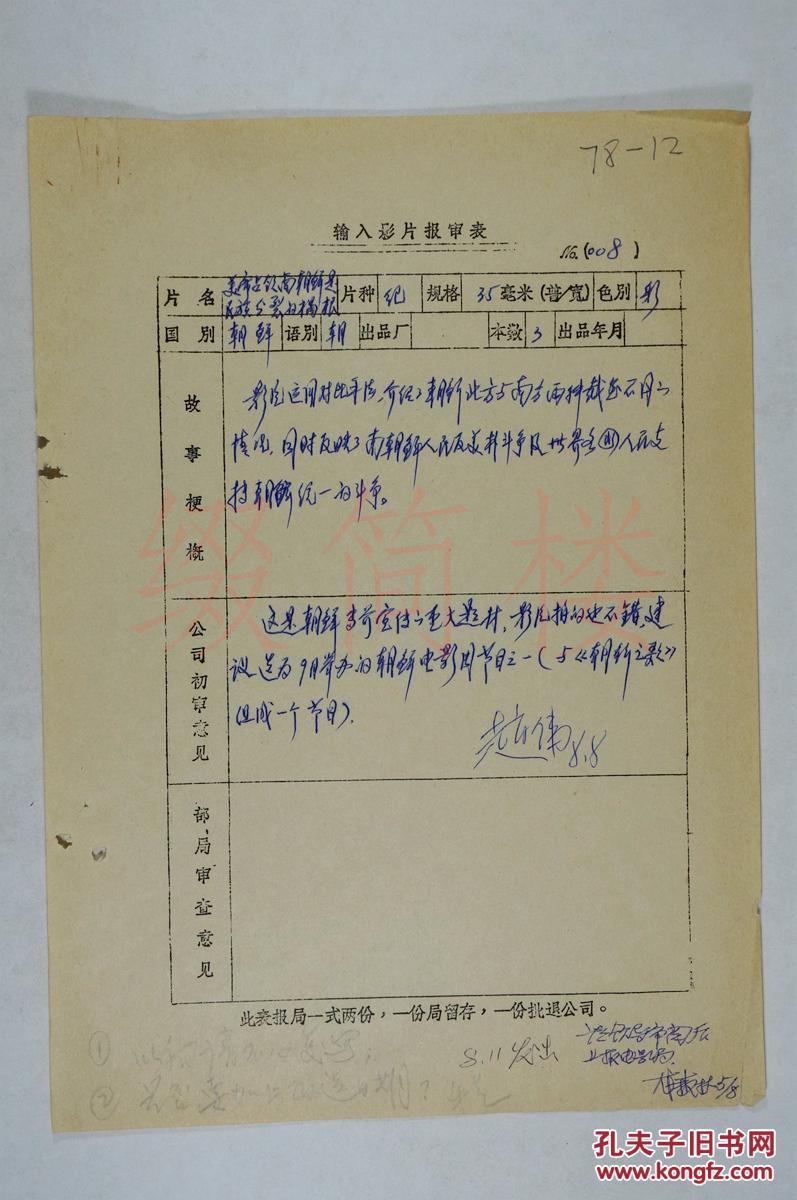 78-12
输入影片报审表
No.(008)
片名 美帝占领南朝鲜是民族分裂的祸根 片种 纪 规格 35毫米(普/宽) 色别 彩
国别 朝鲜 语别 朝 出品厂 本数 3 出品年月
故事梗概
影片运用对比手法,介绍了朝鲜北方与南方两种截然不同的
情况,同时反映了南朝鲜人民反美斗争及世界各州人民支
持朝鲜统一的斗争。
公司初审意见
这是朝鲜当前宣传的重大题材,影片拍的也不错,建
议选为9月举办的朝鲜电影周节目之一(与《朝鲜之歌》
组成一个节目).
8.8
部、局审查意见
此表报局一式两份,一份局留存,一份批退公司。
①
8.11发出
上报电影局.
5/8
②
缀简楼
孔夫子旧书网
www.kongfz.com